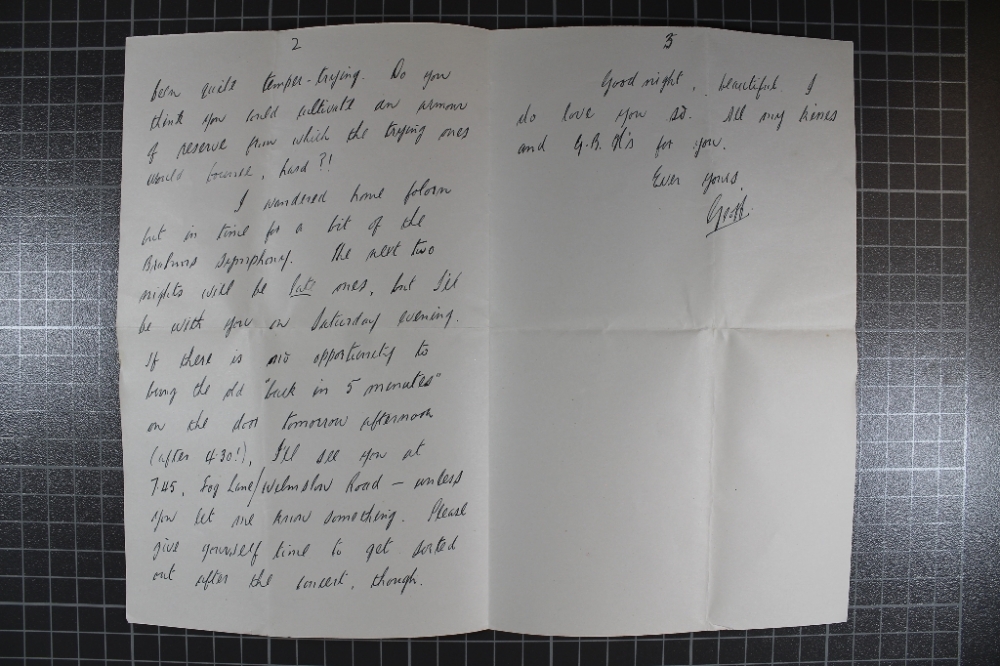 2
been quite temper-trying. Do you
think you could cultivate an armour
of reserve from which the trying ones
would bounce, hard?!
I wandered home folorn
but in time for a bit of the
Brahms Symphony. The next two
nights will be late ones, but I'll
be with you on Saturday evening.
If there is no opportunity to
bung the old "back in 5 minutes"
on the door tomorrow afternoon
(after 4.30!), I'll see you at
7.45, Fog Lane/Wilmslow Road — unless
you let me know something. Please
give yourself time to get sorted
out after the concert, though.
3
Good night, beautiful. I
do love you so. All my
and G.B. H's for you.
Ever yours,
Geoff.